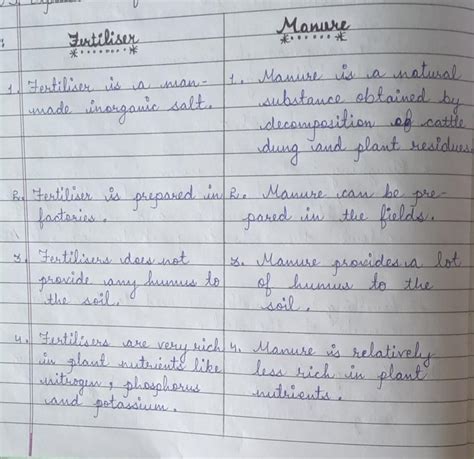 Fertiliser
Manure
1. Fertiliser is a man-
made inorganic salt.
1. Manure is a natural
substance obtained by
decomposition of cattle
dung and plant residues.
2. Fertiliser is prepared in
factories.
2. Manure can be pre-
pared in the fields.
3. Fertilisers does not
provide any humus to
the soil.
3. Manure provides a lot
of humus to the
soil.
4. Fertilisers are very rich
in plant nutrients like
nitrogen, phosphorus
and potassium.
4. Manure is relatively
less rich in plant
nutrients.